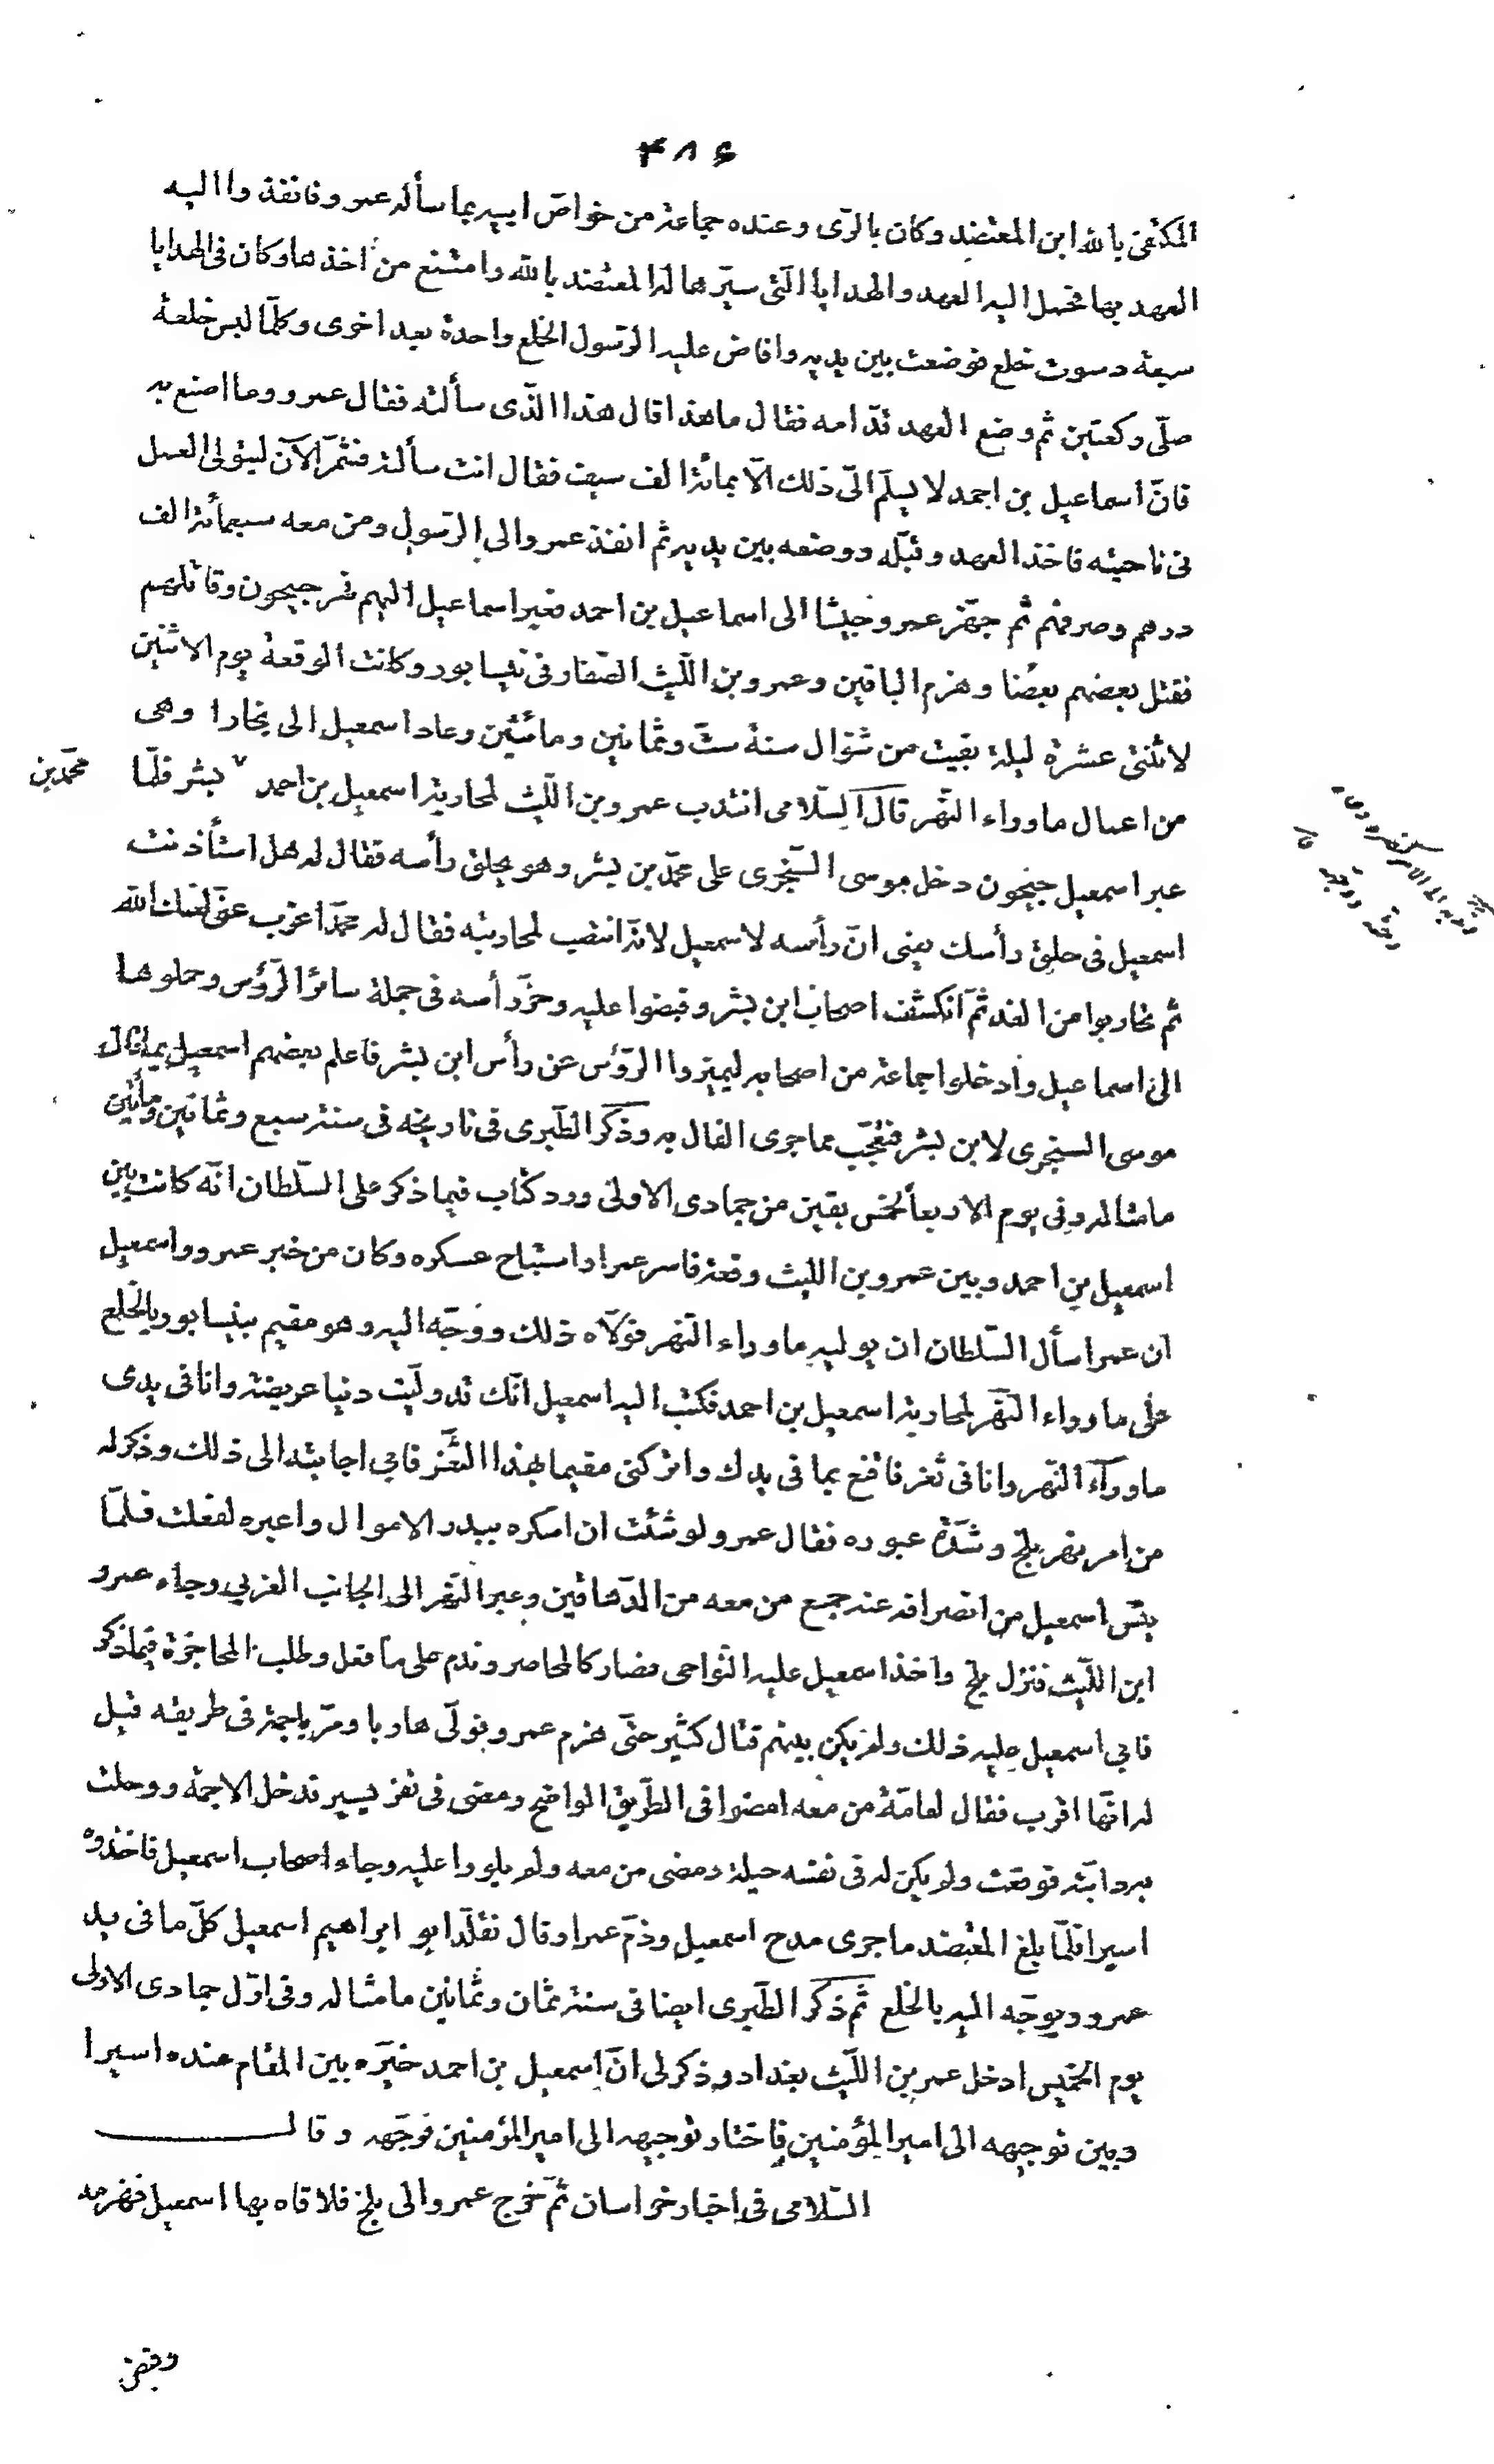 ۴۸۶
المكتفى بالله ابن المعتضد وكان بالرّى وعنده جماعة من خواصّ ابيه بما سأله عمرو فانفذوا اليه
العهد بها فحمل اليه العهد والهدايا الّتى سيّرها له المعتضد بالله وامتنع من اخذها وكان فى الهدايا
سبعة دسوت خلع فوضعت بين يديه وافاض عليه الرّسول الخلع واحدة بعد اخرى وكلّما لبس خلعة
صلّى ركعتين ثم وضع العهد قدّامه فقال ما هذا قال هذا الّذى سألته فقال عمرو وما اصنع به
فانّ اسماعيل بن احمد لا يسلّم الىّ ذلك الّا بمائة الف سيف فقال انت سألته فشمّر الآن ليتولى العمل
فى ناحيته فاخذ العهد وقبّله ووضعه بين يديه ثم انفذ عمرو الى الرّسول ومن معه سبعمأئة الف
درهم وصرفهم ثم جهّز عمرو جيشا الى اسماعيل بن احمد فعبر اسماعيل اليهم نهر جيحون وقاتلهم
فقتل بعضهم بعضا وهزم الباقين وعمرو بن اللّيث الصّفار فى نيسابور وكانت الوقعة يوم الاثنين
لاثنتى عشرة ليلة بقيت من شوّال سنة ستّ وثمانين ومائتين وعاد اسمعيل الى بخارا وهى
من اعمال ماوراء النّهر قال السّلامى انتدب عمرو بن اللّيث لمحاربة اسمعيل بن احمد ٧ بشر فلمّا
محمّد بن
عبر اسمعيل جيحون دخل موسى السّنجرى على محمّد بن بشر وهو يحلق رأسه فقال له هل استأذنت
اسمعيل فى حلق رأسك يعنى انّ رأسه لاسمعيل لانّه انتصب لمحاربته فقال له محمّد اعزب عنّى لعنك الله
ثم تحاربوا من الغد ثمّ انكشفت اصحاب ابن بشر وقبضوا عليه وحزّ رأسه فى جملة سائر الرّؤس وحملوها
الى اسماعيل وأدخلوا جماعة من اصحابه ليميّزوا الرّؤس عن رأس ابن بشر فاعلم بعضهم اسمعيل بما قال
موسى السنجرى لابن بشر فتعجّب مما جرى الفال به وذكر الطّبرى فى تاريخه فى سنة سبع وثمانين ومأتين
ما مثاله وفى يوم الاربعأ لخمس بقين من جمادى الاولى ورد كتاب فيما ذكر على السّلطان انّه كانت بين
اسمعيل بن احمد وبين عمرو بن الليث وقعة فاسر عمرا واستباح عسكره وكان من خبر عمرو واسمعيل
ان عمرا سأل السّلطان ان يوليه ماوراء النّهر فولّاه ذلك ووجّه اليه وهو مقيم بنيسابور بالخلع
على ماوراء النّهر لمحاربة اسمعيل بن احمد فكتب اليه اسمعيل انّك قد ولّيت دنيا عريضة وانا فى يدى
ماورآء النّهر وانا فى ثغر فاقنع بما فى يدك واتركنى مقيما بهذا الثّغر فابى اجابته الى ذلك وذكر له
من امر نهر بلخ وشدّة عبوره فقال عمرو لو شئت ان اسكره ببدر الاموال واعبره لفعلت فلمّا
يئس اسمعيل من انصرافه عنه جمع من معه من الدّهاقين وعبر النّهر الى الجانب الغربى وجاء عمرو
ابن اللّيث فنزل بلخ واخذ اسمعيل عليه النّواحى فصار كالمحاصر وندم على ما فعل وطلب المحاجزة فيما ذكر
فابى اسمعيل عليه ذلك ولم يكن بينهم قتال كثير حتّى هزم عمرو فولّى هاربا ومرّ باجمة فى طريقه قيل
له انّها اقرب فقال لعامّة من معه امضوا فى الطّريق الواضح ومضى فى نفر يسير فدخل الاجمة ووحلت
به دابّته فوقعت ولم يكن له فى نفسه حيلة ومضى من معه ولم يلووا عليه وجاء اصحاب اسمعيل فاخذوه
اسيرا فلمّا بلغ المعتضد ما جرى مدح اسمعيل وذمّ عمرا وقال تقلّد ابو ابراهيم اسمعيل كلّ ما فى يد
عمرو ويوجّه اليه بالخلع ثم ذكر الطّبرى ايضا فى سنة ثمان وثمانين ما مثاله وفى اوّل جمادى الاولى
يوم الخميس ادخل عمرو بن اللّيث بغداد وذكر لى انّ اسمعيل بن احمد خيّره بين المقام عنده اسيرا
وبين توجيهه الى امير المؤمنين فاختار توجيهه الى امير المؤمنين فوجّهه وقال
السّلامى فى اخبار خراسان ثمّ خرج عمرو الى بلخ فلاقاه بها اسمعيل فهزمه
وقبض